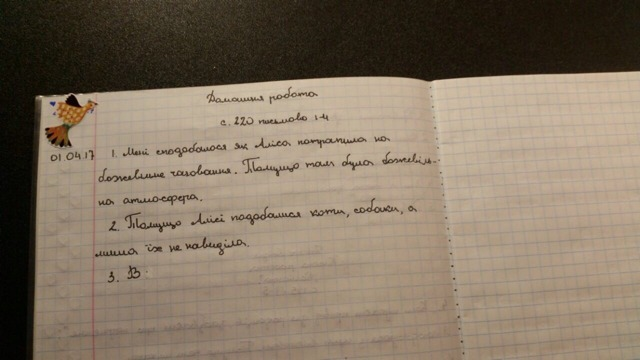 Домашня робота
с. 220 письмово 1-4
01.04.17
1. Мені сподобалося як Аліса потрапила на
божевільне чаювання. Тому що там була божевіль-
на атмосфера.
2. Тому що Алісі подобалися коти, собаки, а
миша їх не навиділа.
3. В